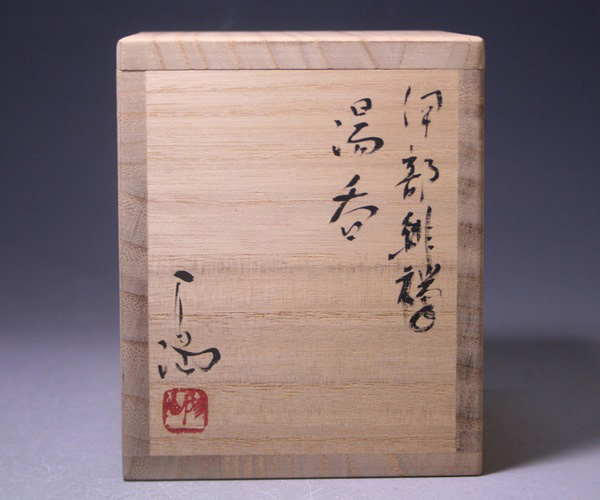 伊部緋襷
湯呑